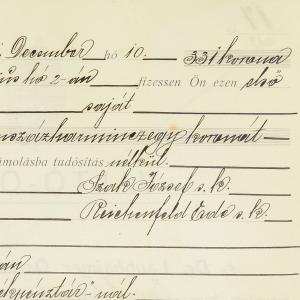 December hó 10. 331 korona
hó 2-án fizessen Ön ezen első
saját
százharminczegy koronát
számolásba tudósítás nélkül.
Szák József s. k.
Reichenfeld Ede s. k.
pénztár"-nál.